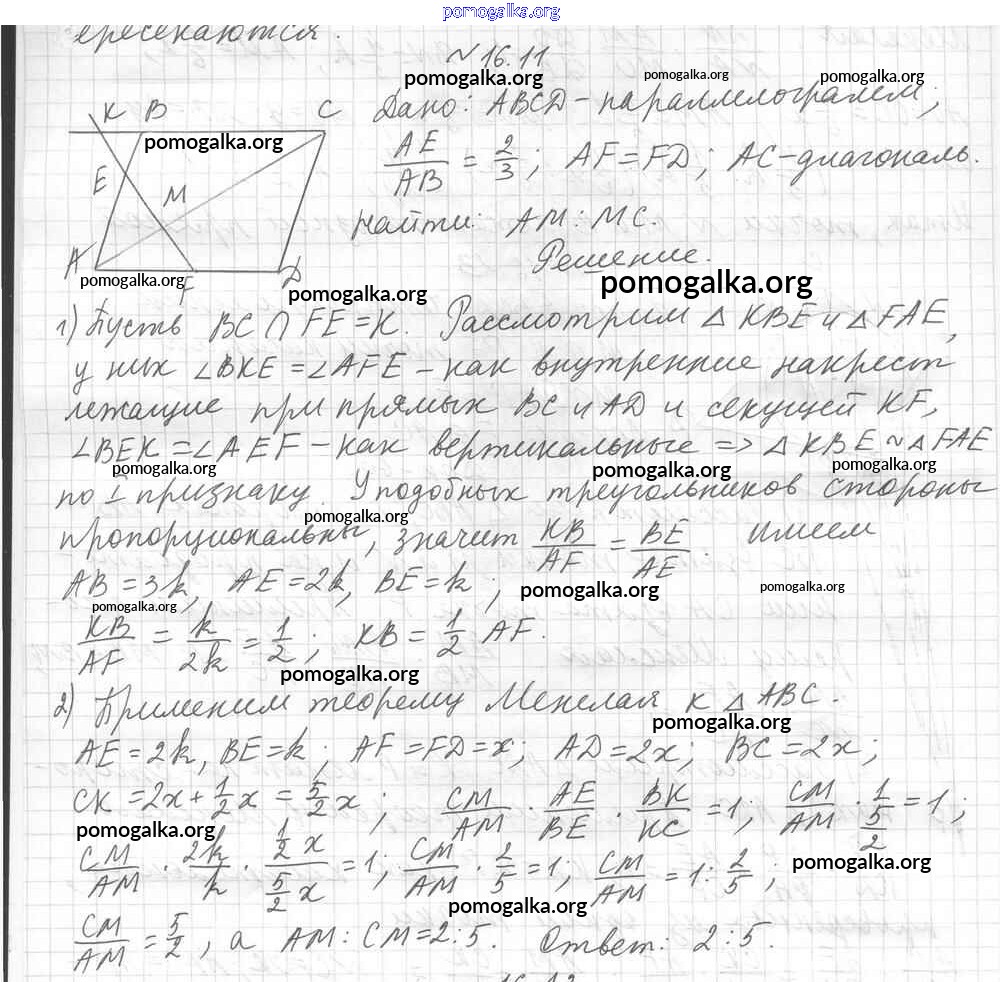 pomogalka.org
ересекаются.
№16.11
pomogalka.org pomogalka.org pomogalka.org
K B C Дано: ABCD - параллелограмм;
pomogalka.org
AE/AB = 2/3; AF = FD; AC - диагональ.
E M
Найти: AM : MC.
A F D Решение.
pomogalka.org pomogalka.org pomogalka.org
1) Пусть BC ∩ FE = K. Рассмотрим △ KBE и △ FAE,
у них ∠BKE = ∠AFE - как внутренние накрест
лежащие при прямых BC и AD и секущей KF,
∠BEK = ∠AEF - как вертикальные => △ KBE ~ △ FAE
pomogalka.org pomogalka.org pomogalka.org
по I признаку. У подобных треугольников стороны
pomogalka.org
пропорциональны, значит KB/AF = BE/AE. Имеем
AB = 3k, AE = 2k, BE = k;
pomogalka.org pomogalka.org pomogalka.org
KB/AF = k/2k = 1/2; KB = 1/2 AF.
pomogalka.org
2) Применим теорему Менелая к △ ABC.
pomogalka.org
AE = 2k, BE = k; AF = FD = x; AD = 2x; BC = 2x;
CK = 2x + 1/2 x = 5/2 x; CM/AM · AE/BE · BK/KC = 1; CM/AM · 1/(5/2) = 1;
pomogalka.org
CM/AM · 2k/k · (1/2 x)/(5/2 x) = 1; CM/AM · 2/5 = 1; CM/AM = 1 : 2/5;
pomogalka.org
pomogalka.org
CM/AM = 5/2, а AM : CM = 2 : 5. Ответ: 2 : 5.